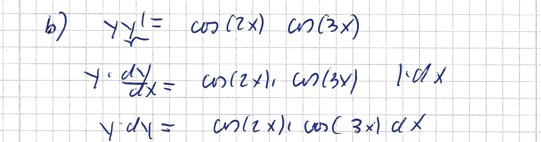 b) yy' = cos(2x) cos(3x)
y · dy/dx = cos(2x) · cos(3x) | · dx
y · dy = cos(2x) · cos(3x) dx